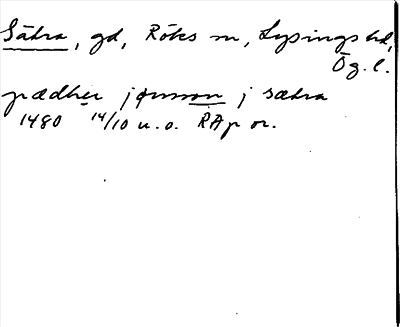 Sätra, gd, Röks sn, Lysings hd,
Ög. l.
pædher jønsson j sætra
1480 14/10 u. o. RAp or.